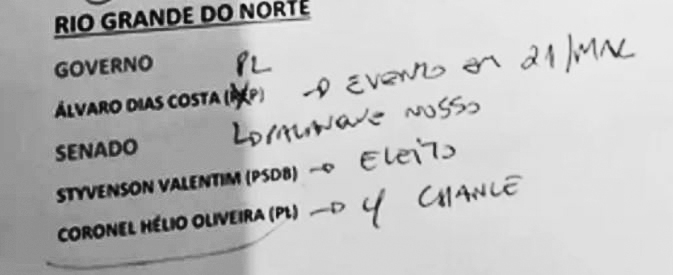 RIO GRANDE DO NORTE
GOVERNO PL
ÁLVARO DIAS COSTA ( P) → EVENTO EM 21/MAR
SENADO NOSSO
STYVENSON VALENTIM (PSDB) → ELEITO
CORONEL HÉLIO OLIVEIRA (PL) → CHANCE